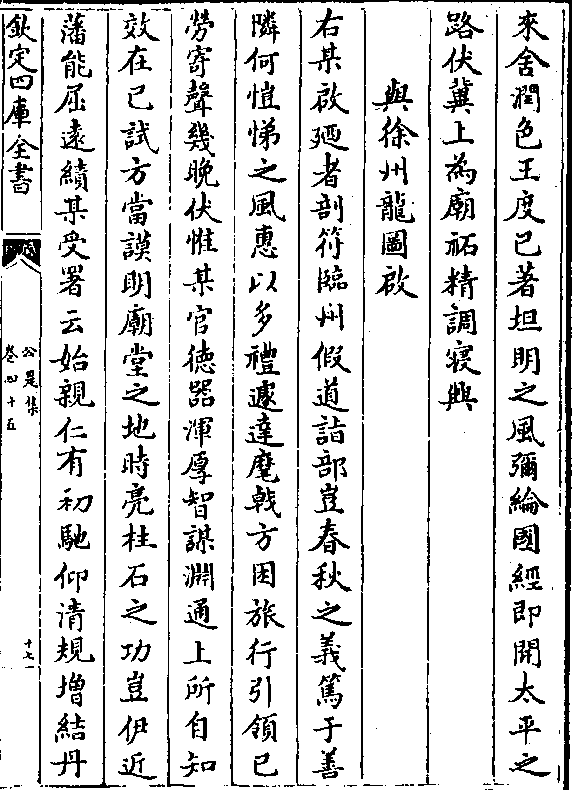 來舍潤色王度已著坦明之風彌綸國經即開太平之
路伏冀上為廟祏精調寝興
與徐州龍圖啟
右某啟廼者剖符臨州假道詣部豈春秋之義篤于善
隣何愷悌之風惠以多禮遽達麾戟方困旅行引領已
勞寄聲幾晚伏惟某官徳器渾厚智謀淵通上所自知
效在已試方當謨明廟堂之地時亮柱石之功豈伊近
藩能屈遠績某受署云始親仁有初馳仰清規増結丹
欽定四庫全書
公是集
卷四十五
十七